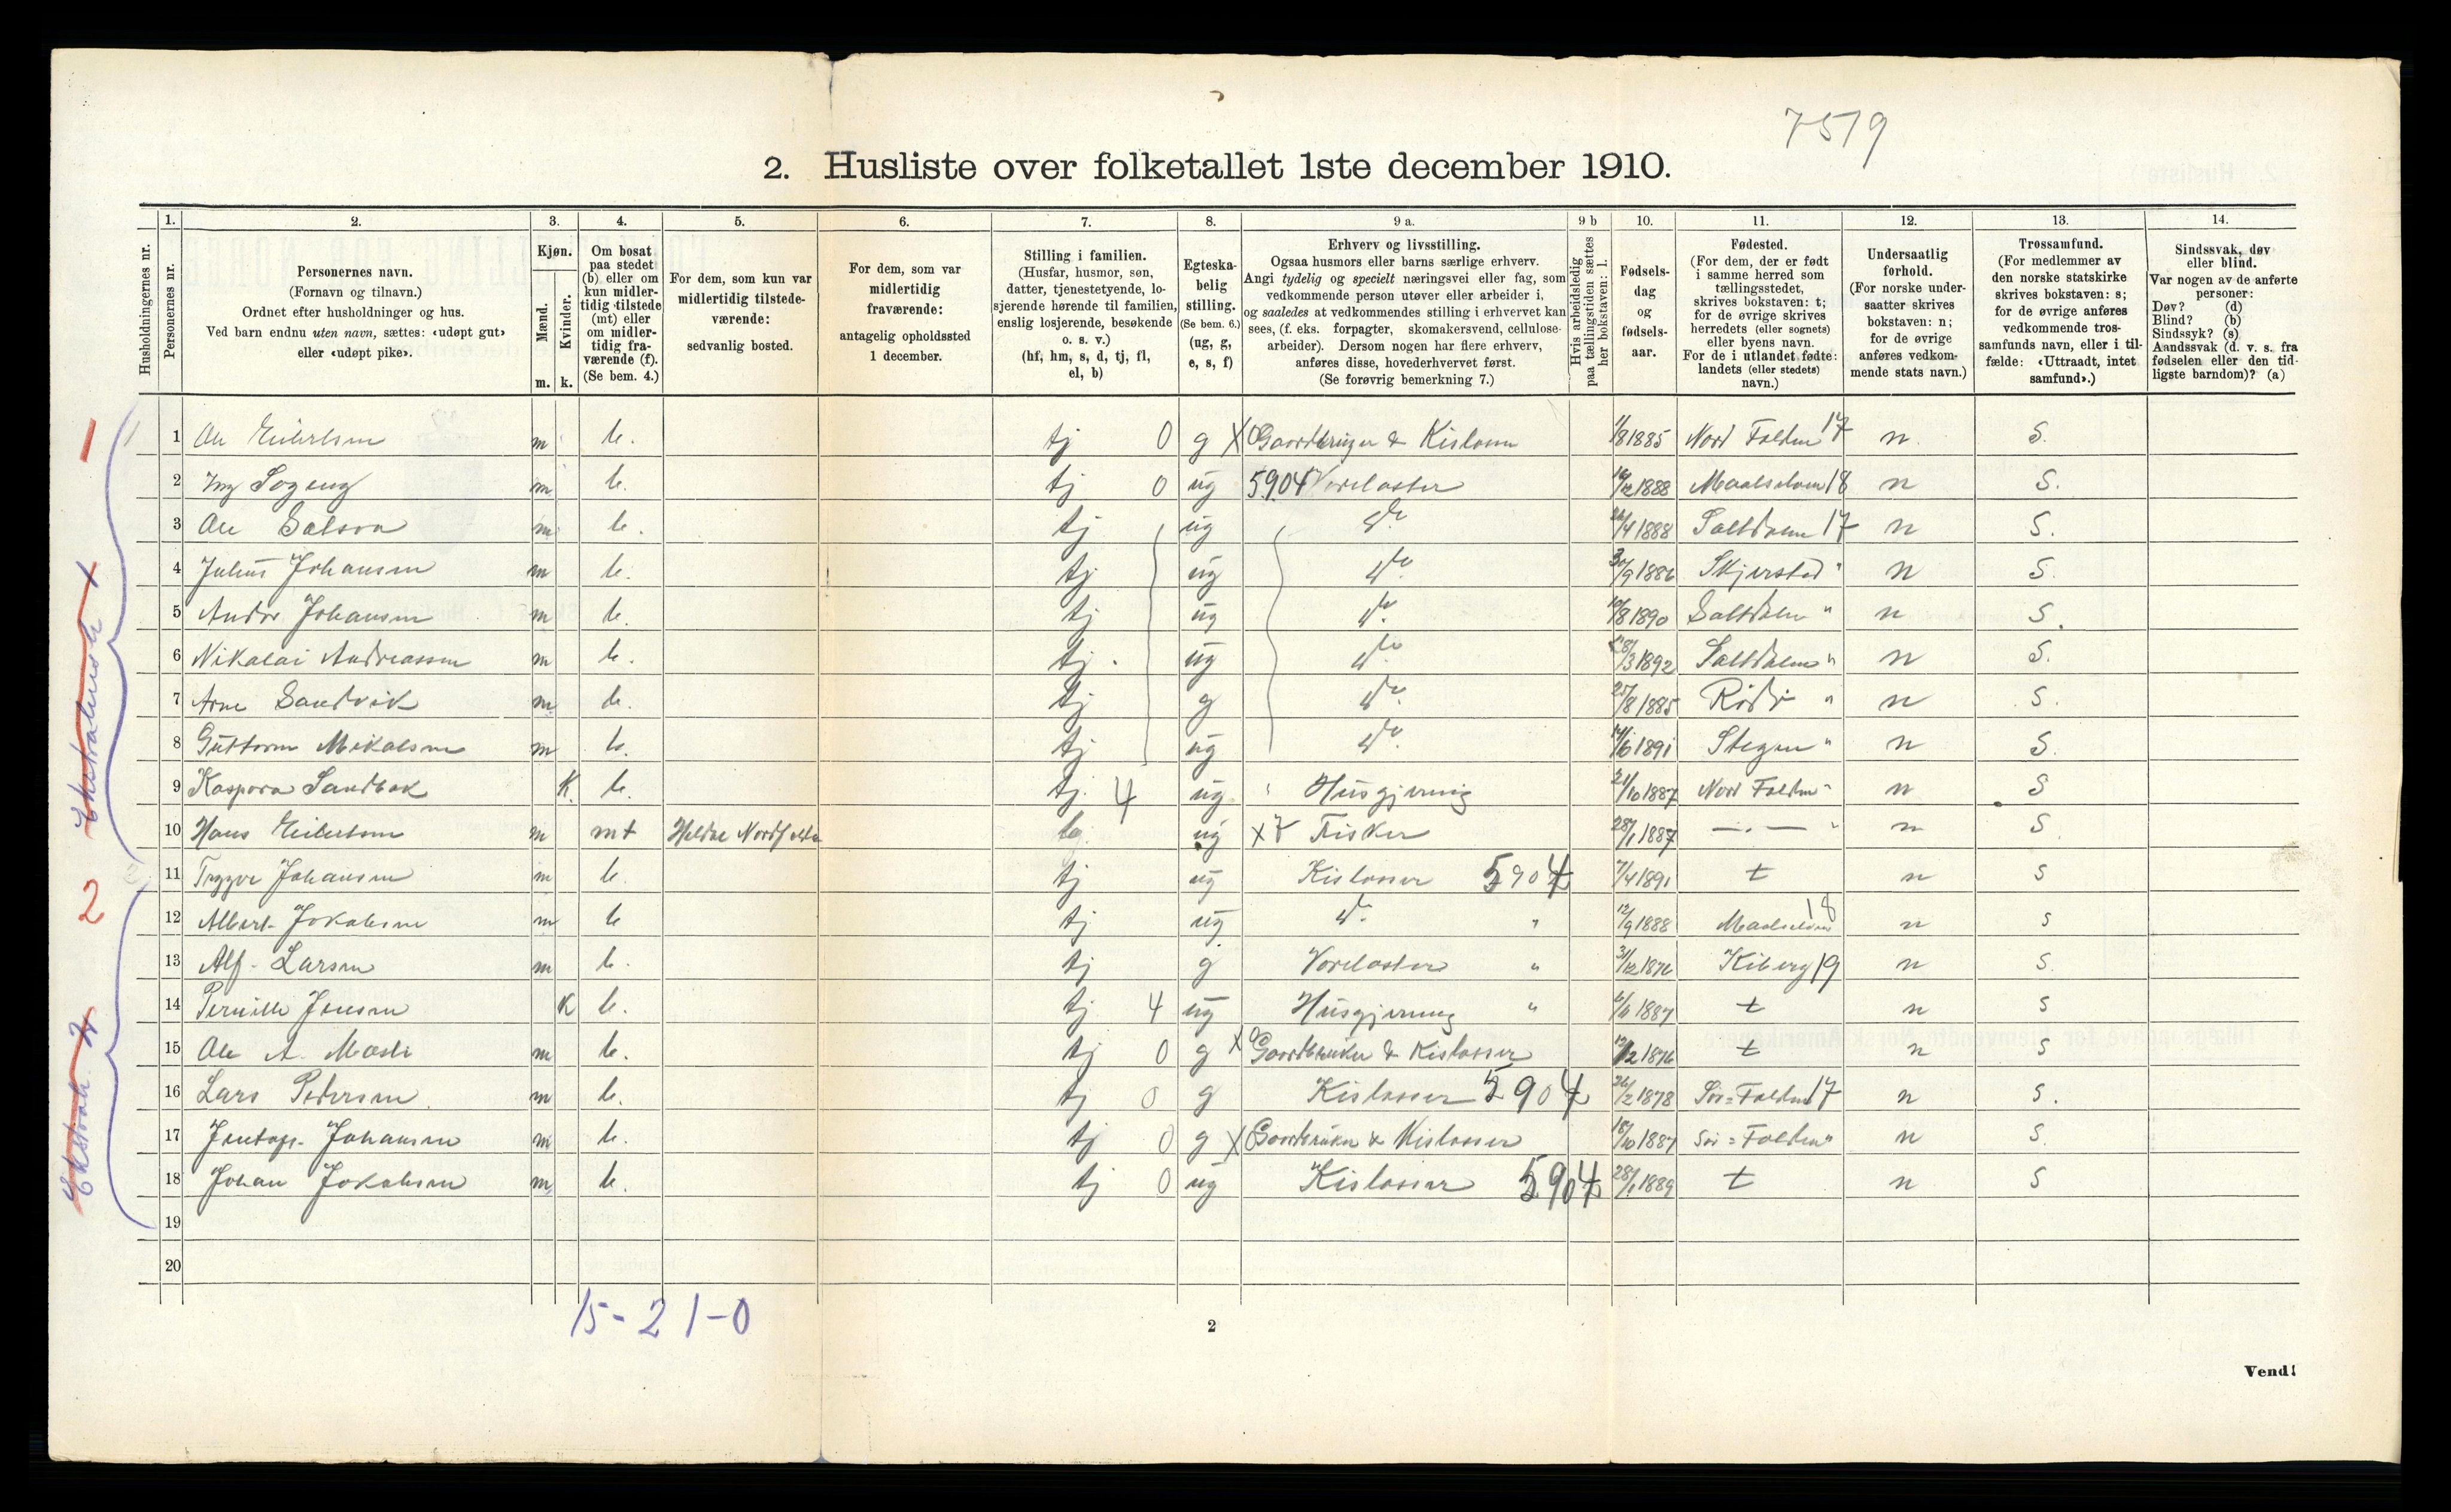 7519
2. Husliste over folketallet 1ste december 1910.
1. 2. 3. 4. 5. 6. 7. 8. 9 a. 9 b 10. 11. 12. 13. 14.
Husholdningernes nr.
Personernes nr.
Personernes navn.
(Fornavn og tilnavn.)
Ordnet efter husholdninger og hus.
Ved barn endnu uten navn, sættes: «udøpt gut»
eller «udøpt pike».
Kjøn.
Mænd.
Kvinder.
m. k.
Om bosat
paa stedet
(b) eller om
kun midler-
tidig tilstede
(mt) eller
om midler-
tidig fra-
værende (f).
(Se bem. 4.)
For dem, som kun var
midlertidig tilstede-
værende:
sedvanlig bosted.
For dem, som var
midlertidig
fraværende:
antagelig opholdssted
1 december.
Stilling i familien.
(Husfar, husmor, søn,
datter, tjenestetyende, lo-
sjerende hørende til familien,
enslig losjerende, besøkende
o. s. v.)
(hf, hm, s, d, tj, fl,
el, b)
Egteska-
belig
stilling.
(Se bem. 6.)
(ug, g,
e, s, f)
Erhverv og livsstilling.
Ogsaa husmors eller barns særlige erhverv.
Angi tydelig og specielt næringsvei eller fag, som
vedkommende person utøver eller arbeider i,
og saaledes at vedkommendes stilling i erhvervet kan
sees, (f. eks. forpagter, skomakersvend, cellulose-
arbeider). Dersom nogen har flere erhverv,
anføres disse, hovederhvervet først.
(Se forøvrig bemerkning 7.)
Hvis arbeidsledig
paa tællingstiden sættes
her bokstaven: l.
Fødsels-
dag
og
fødsels-
aar.
Fødested.
(For dem, der er født
i samme herred som
tællingsstedet,
skrives bokstaven: t;
for de øvrige skrives
herredets (eller sognets)
eller byens navn.
For de i utlandet fødte:
landets (eller stedets)
navn.)
Undersaatlig
forhold.
(For norske under-
saatter skrives
bokstaven: n;
for de øvrige
anføres vedkom-
mende stats navn.)
Trossamfund.
(For medlemmer av
den norske statskirke
skrives bokstaven: s;
for de øvrige anføres
vedkommende tros-
samfunds navn, eller i til-
fælde: «Uttraadt, intet
samfund».)
Sindssvak, døv
eller blind.
Var nogen av de anførte
personer:
Døv? (d)
Blind? (b)
Sindssyk? (s)
Aandssvak (d. v. s. fra
fødselen eller den tid-
ligste barndom)? (a)
1 Ole Eilertsen m b. tj 0 g X Gaardbruger & Kislosser 1/8 1885 Nord Folden 17 n. S.
2 m b. tj 0 ug 5904 Vorelaster 1888 Maalselven 18 n S.
3 Ole m b. tj ug do 26/4 1888 Saltdalen 17 n S.
4 Julius Johansen m b. tj ug do 30/9 1886 Skjerstad " n S.
5 Andor Johansen m b. tj ug do 10/8 1890 Saltdalen " n S.
6 Nikolai Andreassen m b. tj. ug do 1892 Saltdalen " n S.
7 Arne Sandvik m b. tj g do 25/8 1885 Rödö " n S.
8 Guttorm Mikalsen m b. tj ug do 1891 Stegen " n S.
9 Kaspora Sandbak K. b. tj. 4 ug " Husgjerning 21/10 1887 Nord Folden " n S
10 Hans Eilertsen m mt b ug X Fisker 28/1 1887 —„— " n S.
11 Trygve Johansen m b. tj ug Kislosser 5904 7/4 1891 t n S
12 Albert Jokalsen m b tj ug do " 12/9 1888 Maalselven 18 n S
13 Alf Larsen m b. tj g Vorelaster " 31/12 1876 Kiberg 19 n S.
14 Pernille Jensen K b. tj 4 ug Husgjerning " 1887 t n S
15 Ole A. m b. tj 0 g X Gaardbruker & Kislosser 1876 t n S
16 Lars Pedersen. m b. tj 0 g Kislosser 5904 26/2 1878 Sör=Folden 17 n S.
17 Johansen m b. tj 0 g X Gaardbruker & Kislosser 18/10 1887 Sör=Folden " n S.
18 Johan Jokalsen m b. tj 0 ug Kislosser 5904 28/1 1889 t n S
19
20
15-2 1-0
2
Vend!